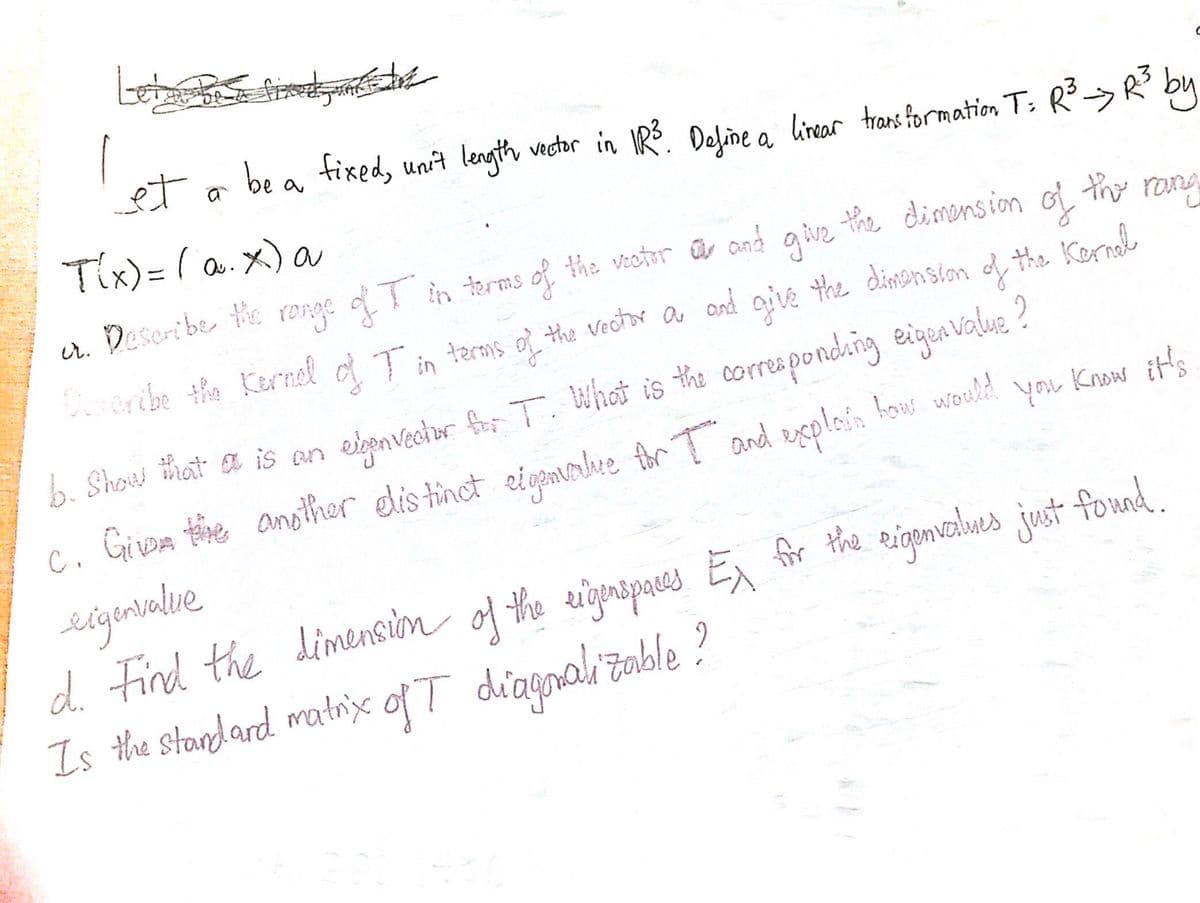 Let a be a fixed, unit length vector in ℝ³. Define a linear transformation T: R³ → R³ by
T(x) = (a.x) a
a. Describe the range of T in terms of the vector a and give the dimension of the rang
Describe the Kernel of T in terms of the vector a and give the dimension of the Kernel
b. Show that a is an eigenvector for T. What is the corresponding eigenvalue?
c. Given another distinct eigenvalue for T and explain how would you Know it's
eigenvalue
d. Find the dimension of the eigenspaces E_λ for the eigenvalues just found.
Is the standard matrix of T diagonalizable?